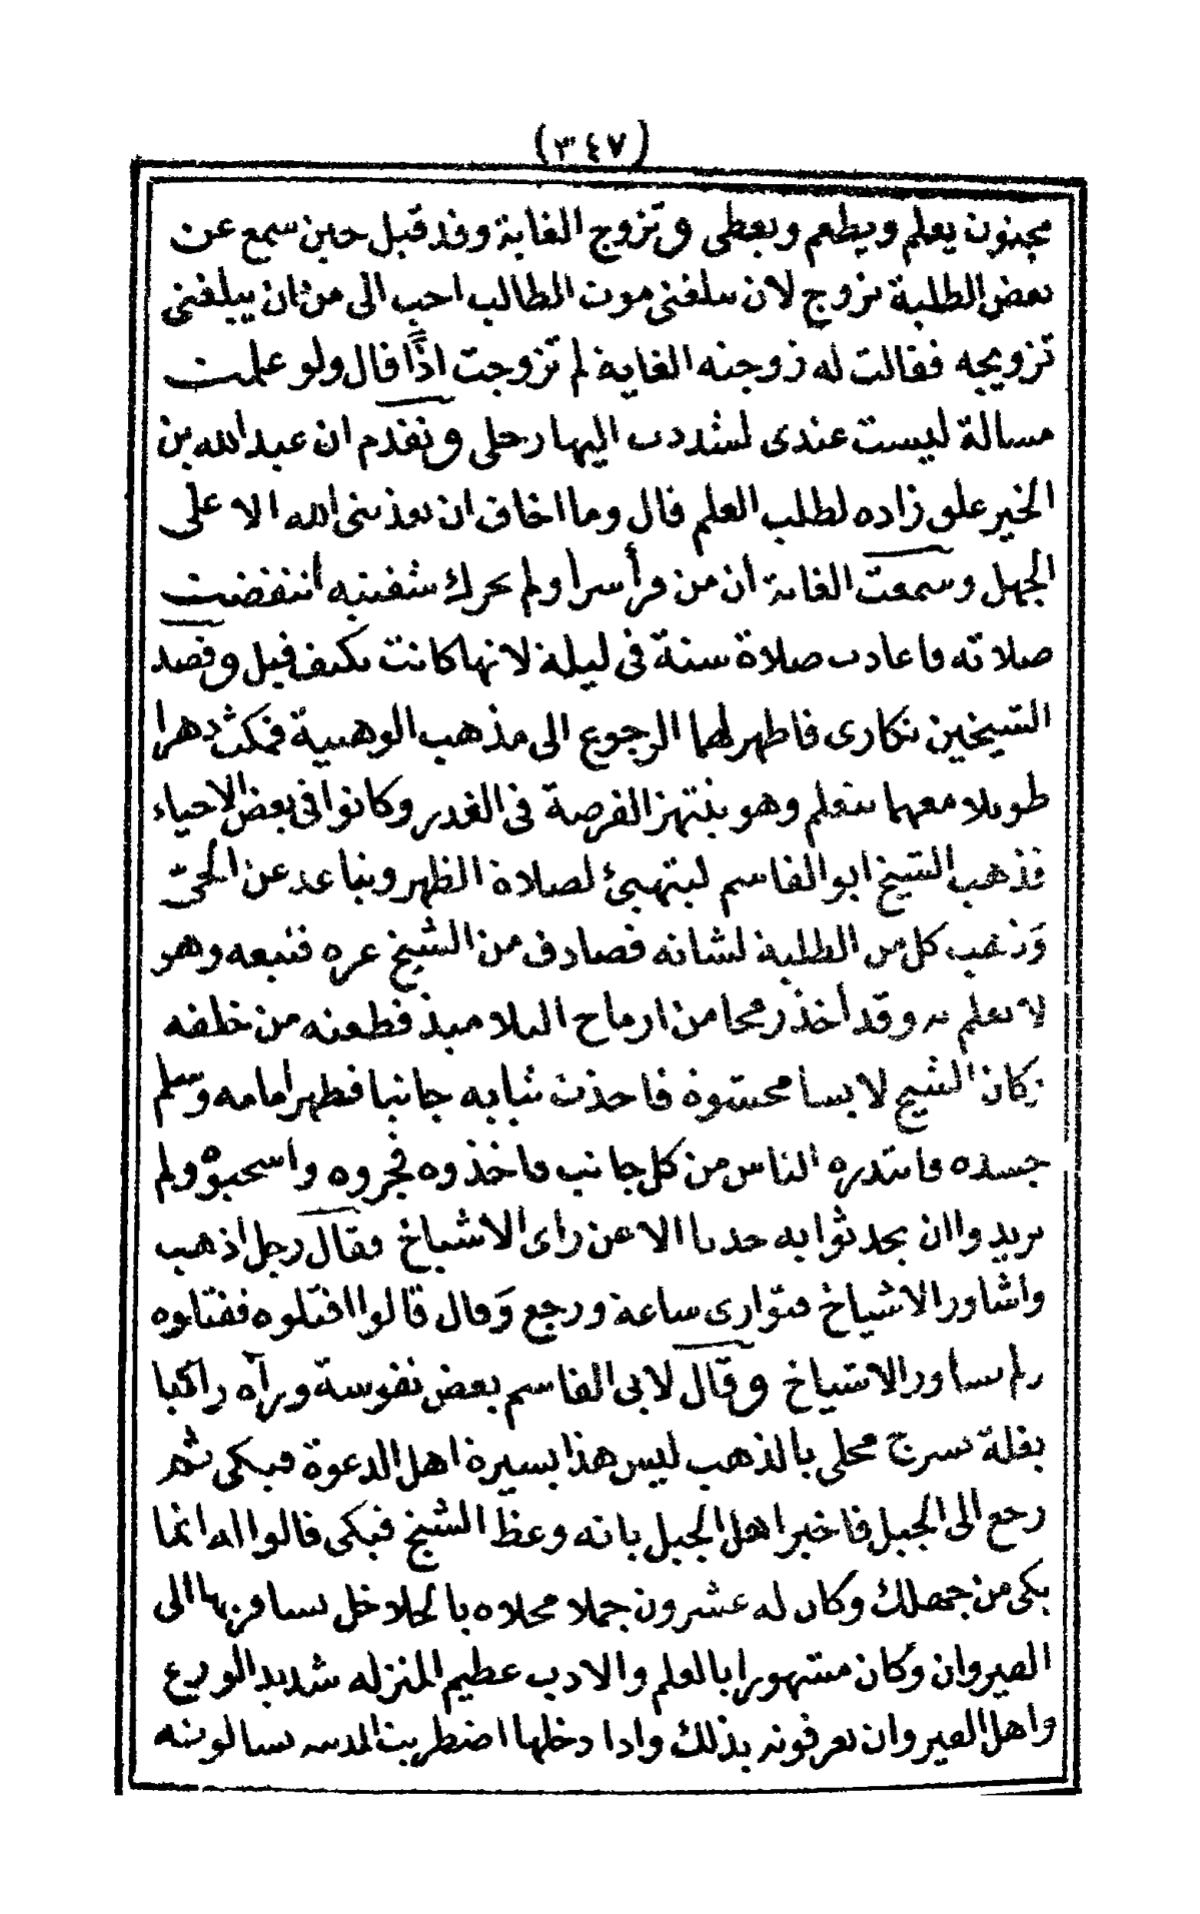 (٣٤٧)
مجنون يعلم ويطعم ويعطى وتزوج الغاية وقد قيل حين سمع عن
بعض الطلبة تزوج لان يبلغنى موت الطالب احب الى من ان يبلغنى
تزويجه فقالت له زوجته الغاية لم تزوجت اذًا قال ولو علمت
مسالة ليست عندى لشددت اليها رحلى وتقدم ان عبد الله بن
الخير علق زاده لطلب العلم قال وما اخاف ان يعذبنى الله الا على
الجهل وسمعت الغاية أن من قرأ سرا ولم يحرك شفتيه أنتقضت
صلاته فاعادت صلاة سنة فى ليلة لانها كانت تكيف قيل وقصد
الشيخين نكارى فاظهر لهما الرجوع الى مذهب الوهبية فمكث دهرا
طويلا معهما يتعلم وهو ينتهز الفرصة فى الغدر وكانوا فى بعض الاحياء
فذهب الشيخ ابو القاسم ليتهيئ لصلاة الظهر وتباعد عن الحىّ
وَذهب كل من الطلبة لشانه فصادف من الشيخ غره فتبعه وهو
لا يعلم به وقد أخذ رمحا من ارماح التلاميذ فطعنه من خلفه
وكان الشيخ لابسا محشوة فاخذت ثيابه جانبا فظهر امامه وسلم
جسده فابتدره الناس من كل جانب فاخذوه فجروه واسحبوه ولم
يريدوا ان يحدثوا به حدثا الا عن راى الاشياخ فقال رجل اذهب
واشاور الاشياخ فتوارى ساعة ورجع وَقال قالوا اقتلوه فقتلوه
ولم يساور الاشياخ وقال لابى القاسم بعض نفوسة ورآه راكبا
بغلة بسرج محلى بالذهب ليس هذا بسيرة اهل الدعوة فبكى ثم
رجع الى الجبل فاخبر اهل الجبل بانه وعظ الشيخ فبكى قالوا له انما
بكى من جهلك وكان له عشرون جملا محلاه بالجلاخل يسافر بها الى
القيروان وكان مشهورا بالعلم والادب عظيم المنزله شديد الورع
واهل القيروان يعرفونه بذلك واذا دخلها اضطربت المدينه يسالونه